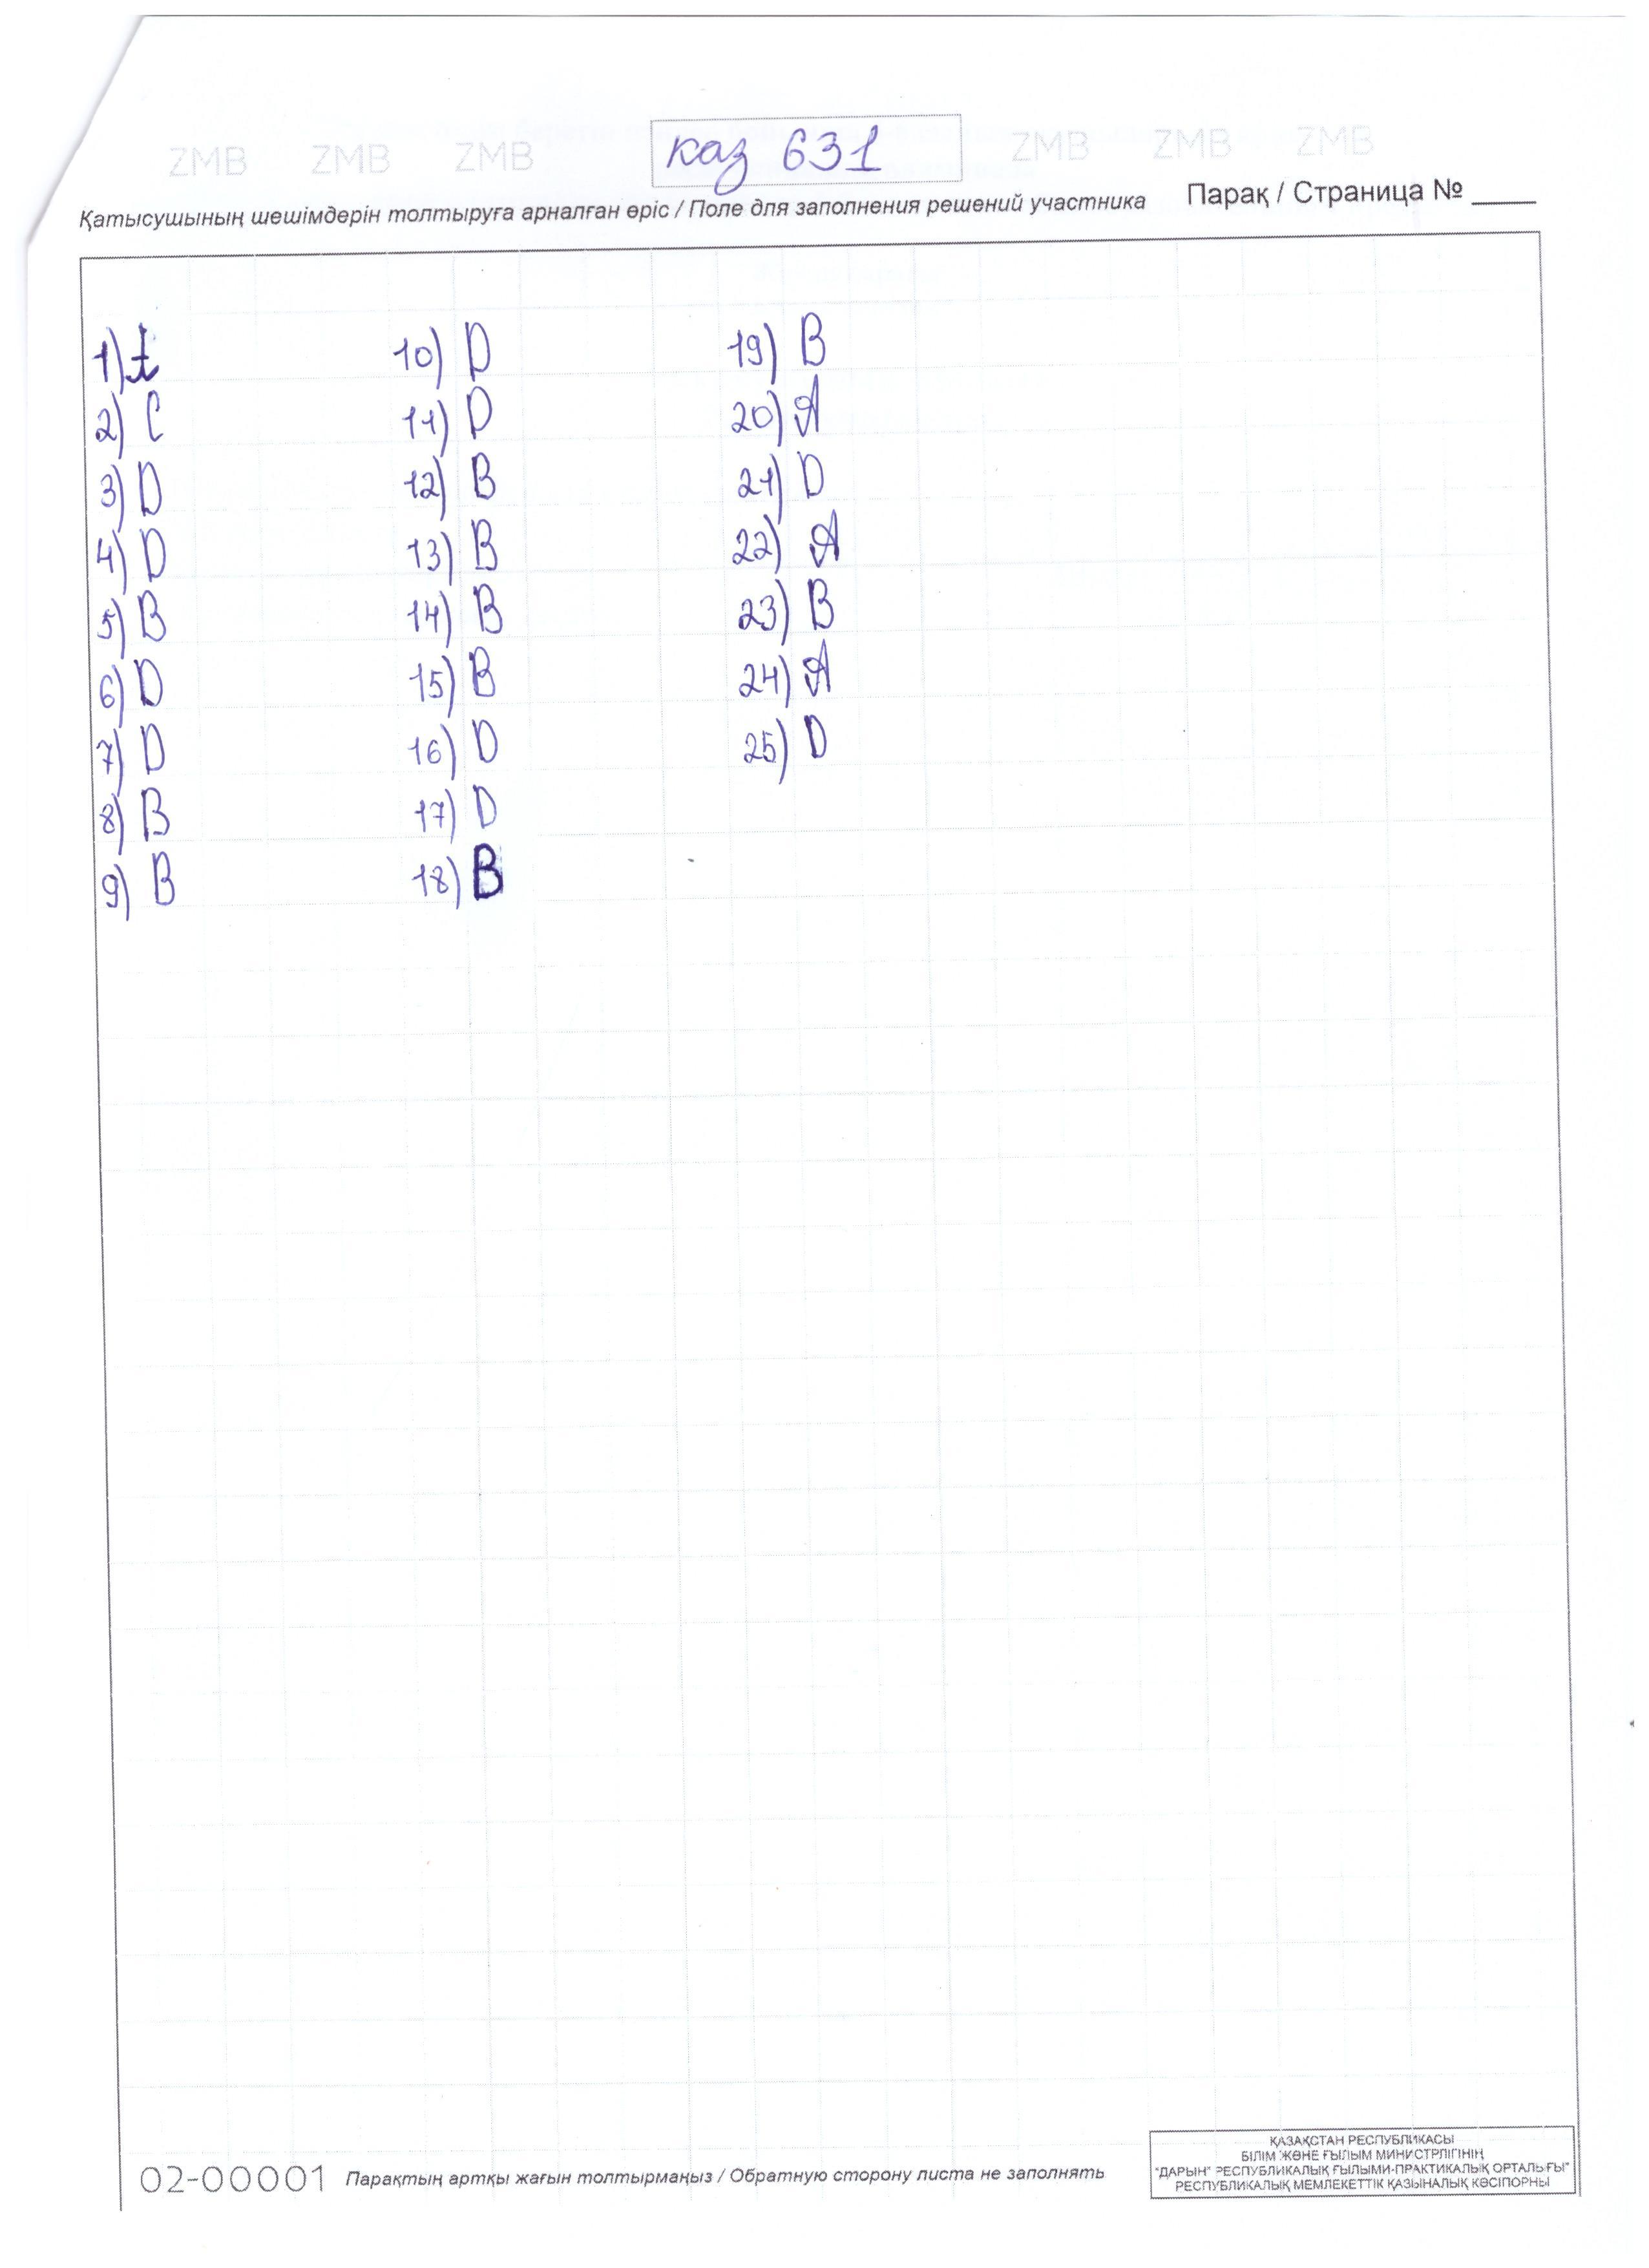 ZMB ZMB ZMB каз 631 ZMB ZMB ZMB
Қатысушының шешімдерін толтыруға арналған өріс / Поле для заполнения решений участника Парақ / Страница № ____
1)
2) C
3) D
4) D
5) B
6) D
7) D
8) B
9) B
10) D
11) D
12) B
13) B
14) B
15) B
16) D
17) D
18) B
19) B
20) A
21) D
22) A
23) B
24) A
25) D
02-00001 Парақтың артқы жағын толтырмаңыз / Обратную сторону листа не заполнять
ҚАЗАҚСТАН РЕСПУБЛИКАСЫ
БІЛІМ ЖӘНЕ ҒЫЛЫМ МИНИСТРЛІГІНІҢ
"ДАРЫН" РЕСПУБЛИКАЛЫҚ ҒЫЛЫМИ-ПРАКТИКАЛЫҚ ОРТАЛЫҒЫ"
РЕСПУБЛИКАЛЫҚ МЕМЛЕКЕТТІК ҚАЗЫНАЛЫҚ КӘСІПОРНЫ